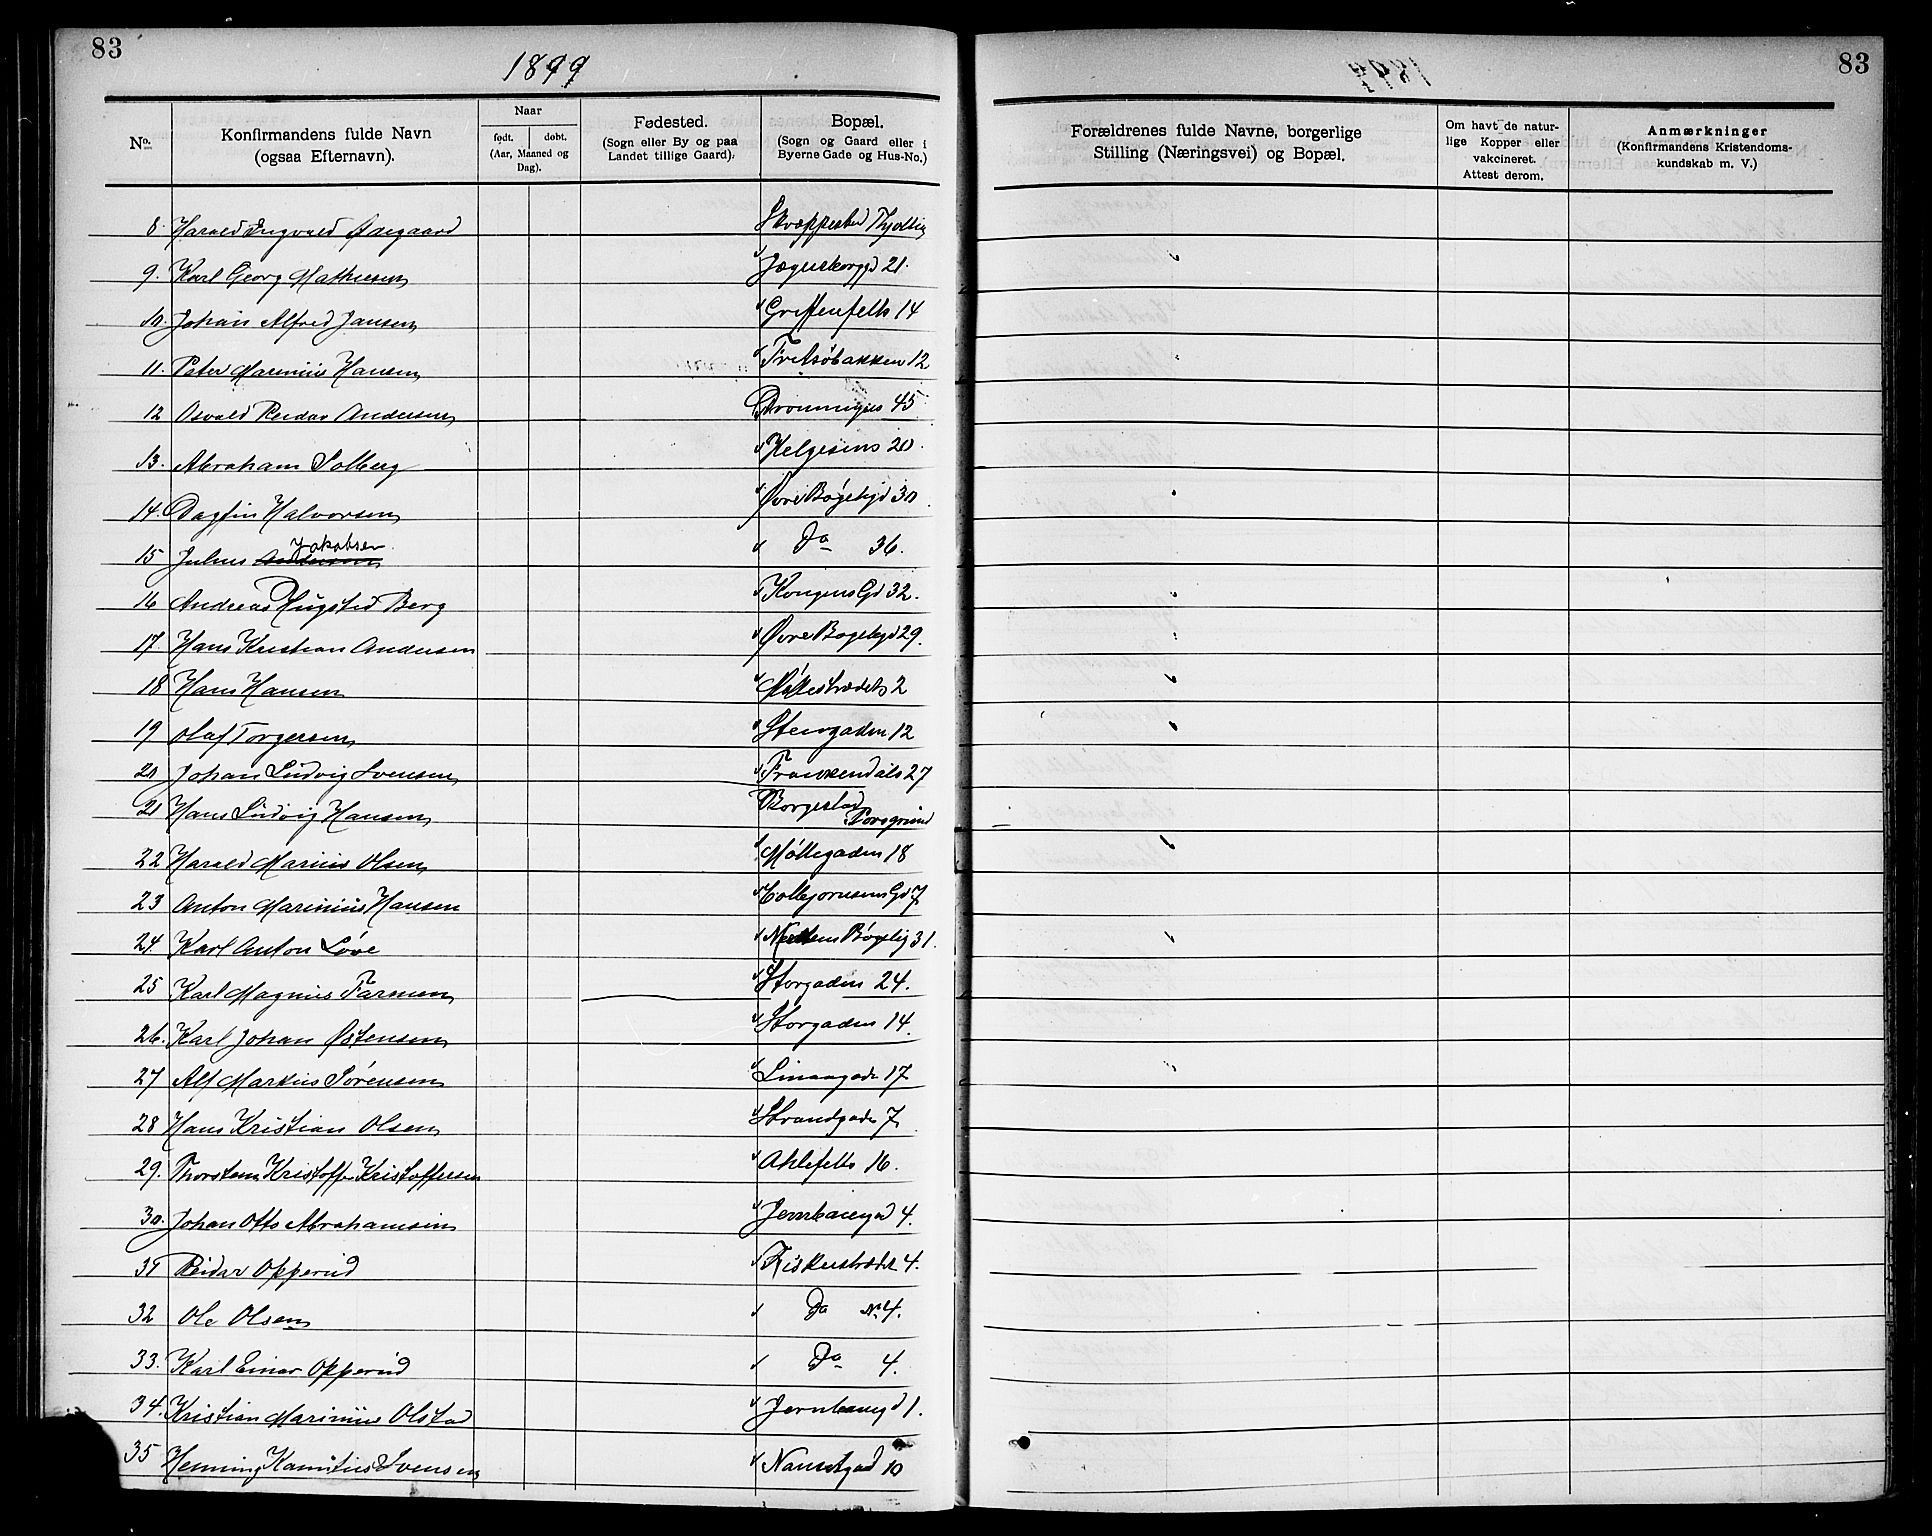 83
1899
No.
Konfirmandens fulde Navn
(ogsaa Efternavn).
Naar
født. døbt.
(Aar, Maaned og
Dag).
Fødested.
(Sogn eller By og paa
Landet tillige Gaard).
Bopæl.
(Sogn og Gaard eller i
Byerne Gade og Hus-No.)
8. Harald Ingvald Ødegaard
9. Karl Georg Mathiesen 21.
10. Johan Alfred Jansen Griffenfelts 14
11. Peter Marinius Hansen Fritsøbakken 12
12 Osvald Reidar Andersen 45
13. Abraham Solberg Helgesens 20.
14. Dagfin Halvorsen Øvre Bøgelyd 30.
15 Julius Andersen Jakobsen Do 36.
16 Andreas Hugsted Berg Kongens Gd 32.
17. Hans Kristian Andersen Øvre Bøgelyd 29.
18 Hans Hansen 2
19 Olaf Torgersen Stengaden 12
20 Johan Ludvig Svensen Frankendals 27
21 Hans Ludvig Hansen Borgestad
Porsgrund
22 Harald Marius Olsen Møllegaden 18
23 Anton Marinius Hansen Colbjørnsens Gd 7
24. Karl Anton Løve 31.
25 Karl Magnus Farmen Storgaden 24.
26. Karl Johan Østensen Storgaden 14.
27 Alf Markus Sørensen Linaagade 17
28 Hans Kristian Olsen Strandgade 7
29. Thorstein Kristoffer Kristoffersen Ahlefelts 16.
30. Johan Otto Abrahamsen Jernbanegd 4.
31 Reidar Opperud Fiskerstrædet 4.
32 Ole Olsen Do No 4.
33. Karl Einar Opperud Do 4.
34. Kristian Marinius Olstad Jernbanegd 1.
35 Henning Kornelius Svensen Nansetgad 10
83
Forældrenes fulde Navne, borgerlige
Stilling (Næringsvei) og Bopæl.
Om havt de natur-
lige Kopper eller
vakcineret.
Attest derom.
Anmærkninger
(Konfirmandens Kristendoms-
kundskab m. V.)